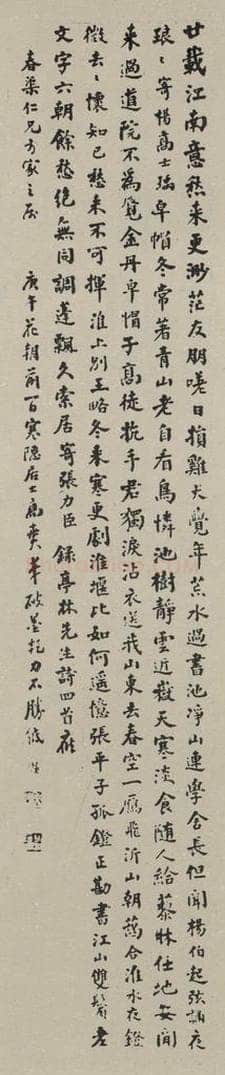 廿載江南意愁來更渺茫友朋嗟日損雞犬覺年荒水過書池凈山連學舍長但聞楊伯起弦誦夜
琅琅 寄楊高士瑀 皁帽冬常著青山老自看鳥憐池樹靜雲近嶽天寒淡食隨人給藜牀任地安閒
來過道院不為覓金丹 皁帽子高徒抗手君獨淚沾衣送我山東去春空一雁飛沂山朝靄合淮水夜鐙
微去去懷知己愁來不可揮 淮上別王略 冬來寒更劇淮堰比如何遙憶張平子孤鐙正勘書江山雙鬢老
文字六朝餘愁絕無同調蓬飄久索居 寄張力臣 錄亭林先生詩四首應
春渠仁兄方家之屬 庚午花朝前 百寒隱居士 筆破墨乾力不勝